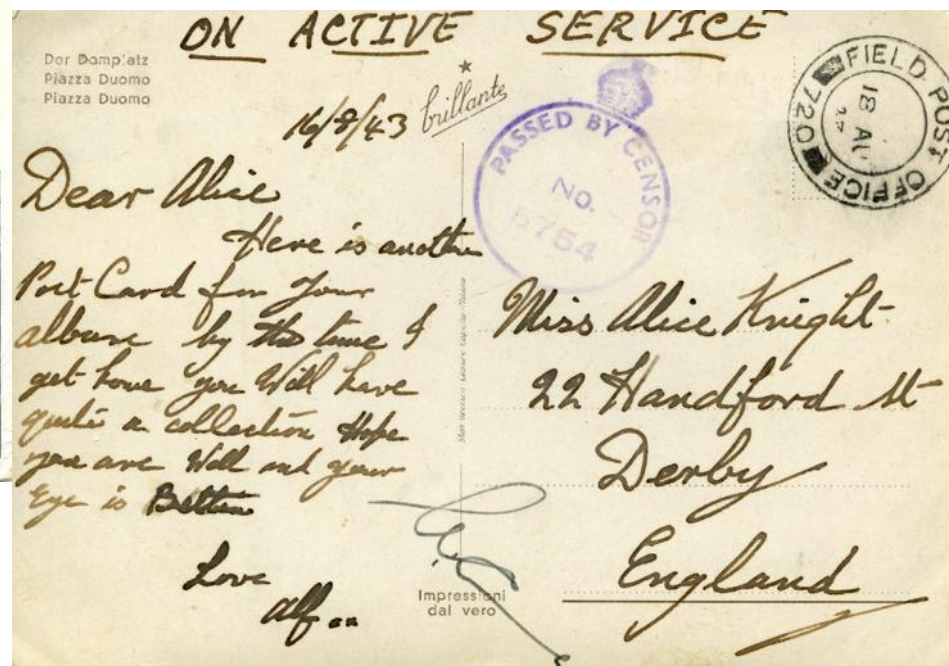 ON ACTIVE SERVICE
Der Domplatz
Piazza Duomo
Piazza Duomo
16/8/43
brillante
PASSED BY CENSOR
NO.
5754
FIELD POST OFFICE
720
18 AU
Dear Alice
Here is another
Post Card for your
album by the time I
get home you Will have
quite a collection Hope
you are Well and your
Eye is Better
Love
Alf..
Miss Alice Knight
22 Handford St
Derby
England
Impressioni
dal vero